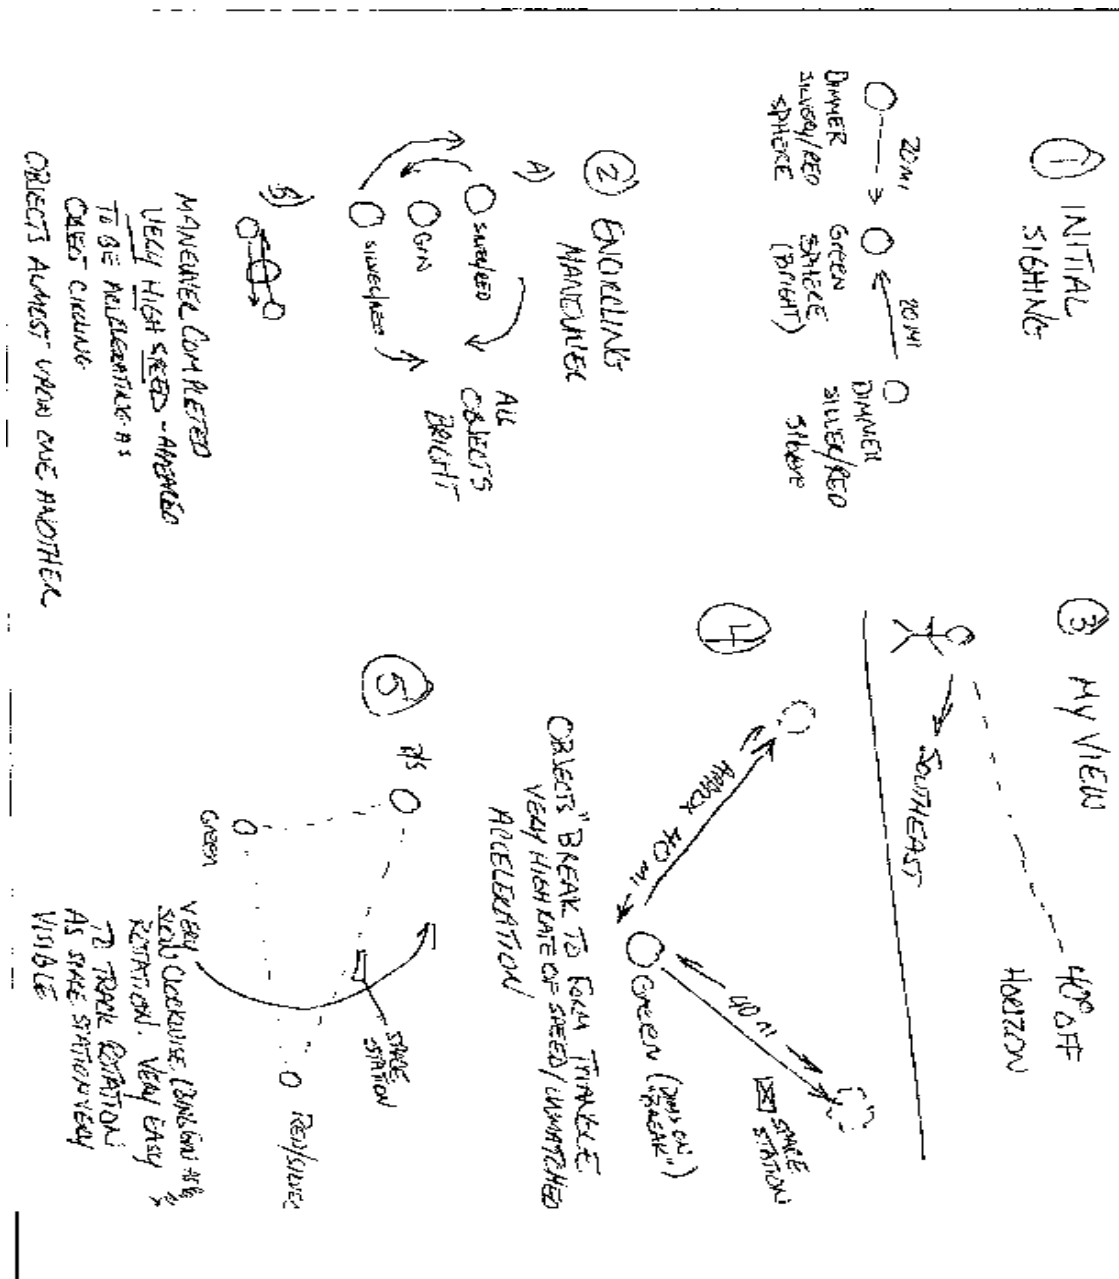 ① INITIAL
SIGHING
20 MI
20 MI
DIMMER
SILVERY/RED
SPHERE
GREEN
SPHERE
(BRIGHT)
DIMMER
SILVER/RED
SPHERE
② ENCIRCLING
MANEUVER
A)
SILVER/RED
GRN
SILVER/RED
ALL
OBJECTS
BRIGHT
B)
MANEUVER COMPLETED
VERY HIGH SPEED - APPEARED
TO BE ACCELERATING AS
OBJECT CIRCLING
OBJECTS ALMOST UPON ONE ANOTHER
③ MY VIEW
40° OFF
HORIZON
SOUTHEAST
④
APPROX 40 MI
40 MI
GREEN (DIMS ON
"BREAK")
SPACE
STATION
OBJECTS "BREAK TO FORM TRIANGLE
VERY HIGH RATE OF SPEED/UNMATCHED
ACCELERATION
⑤
R/S
SPACE
STATION
GREEN
RED/SILVER
VERY
SLOW CLOCKWISE
ROTATION. VERY EASY
TO TRACK ROTATION
AS SPACE STATION VERY
VISIBLE